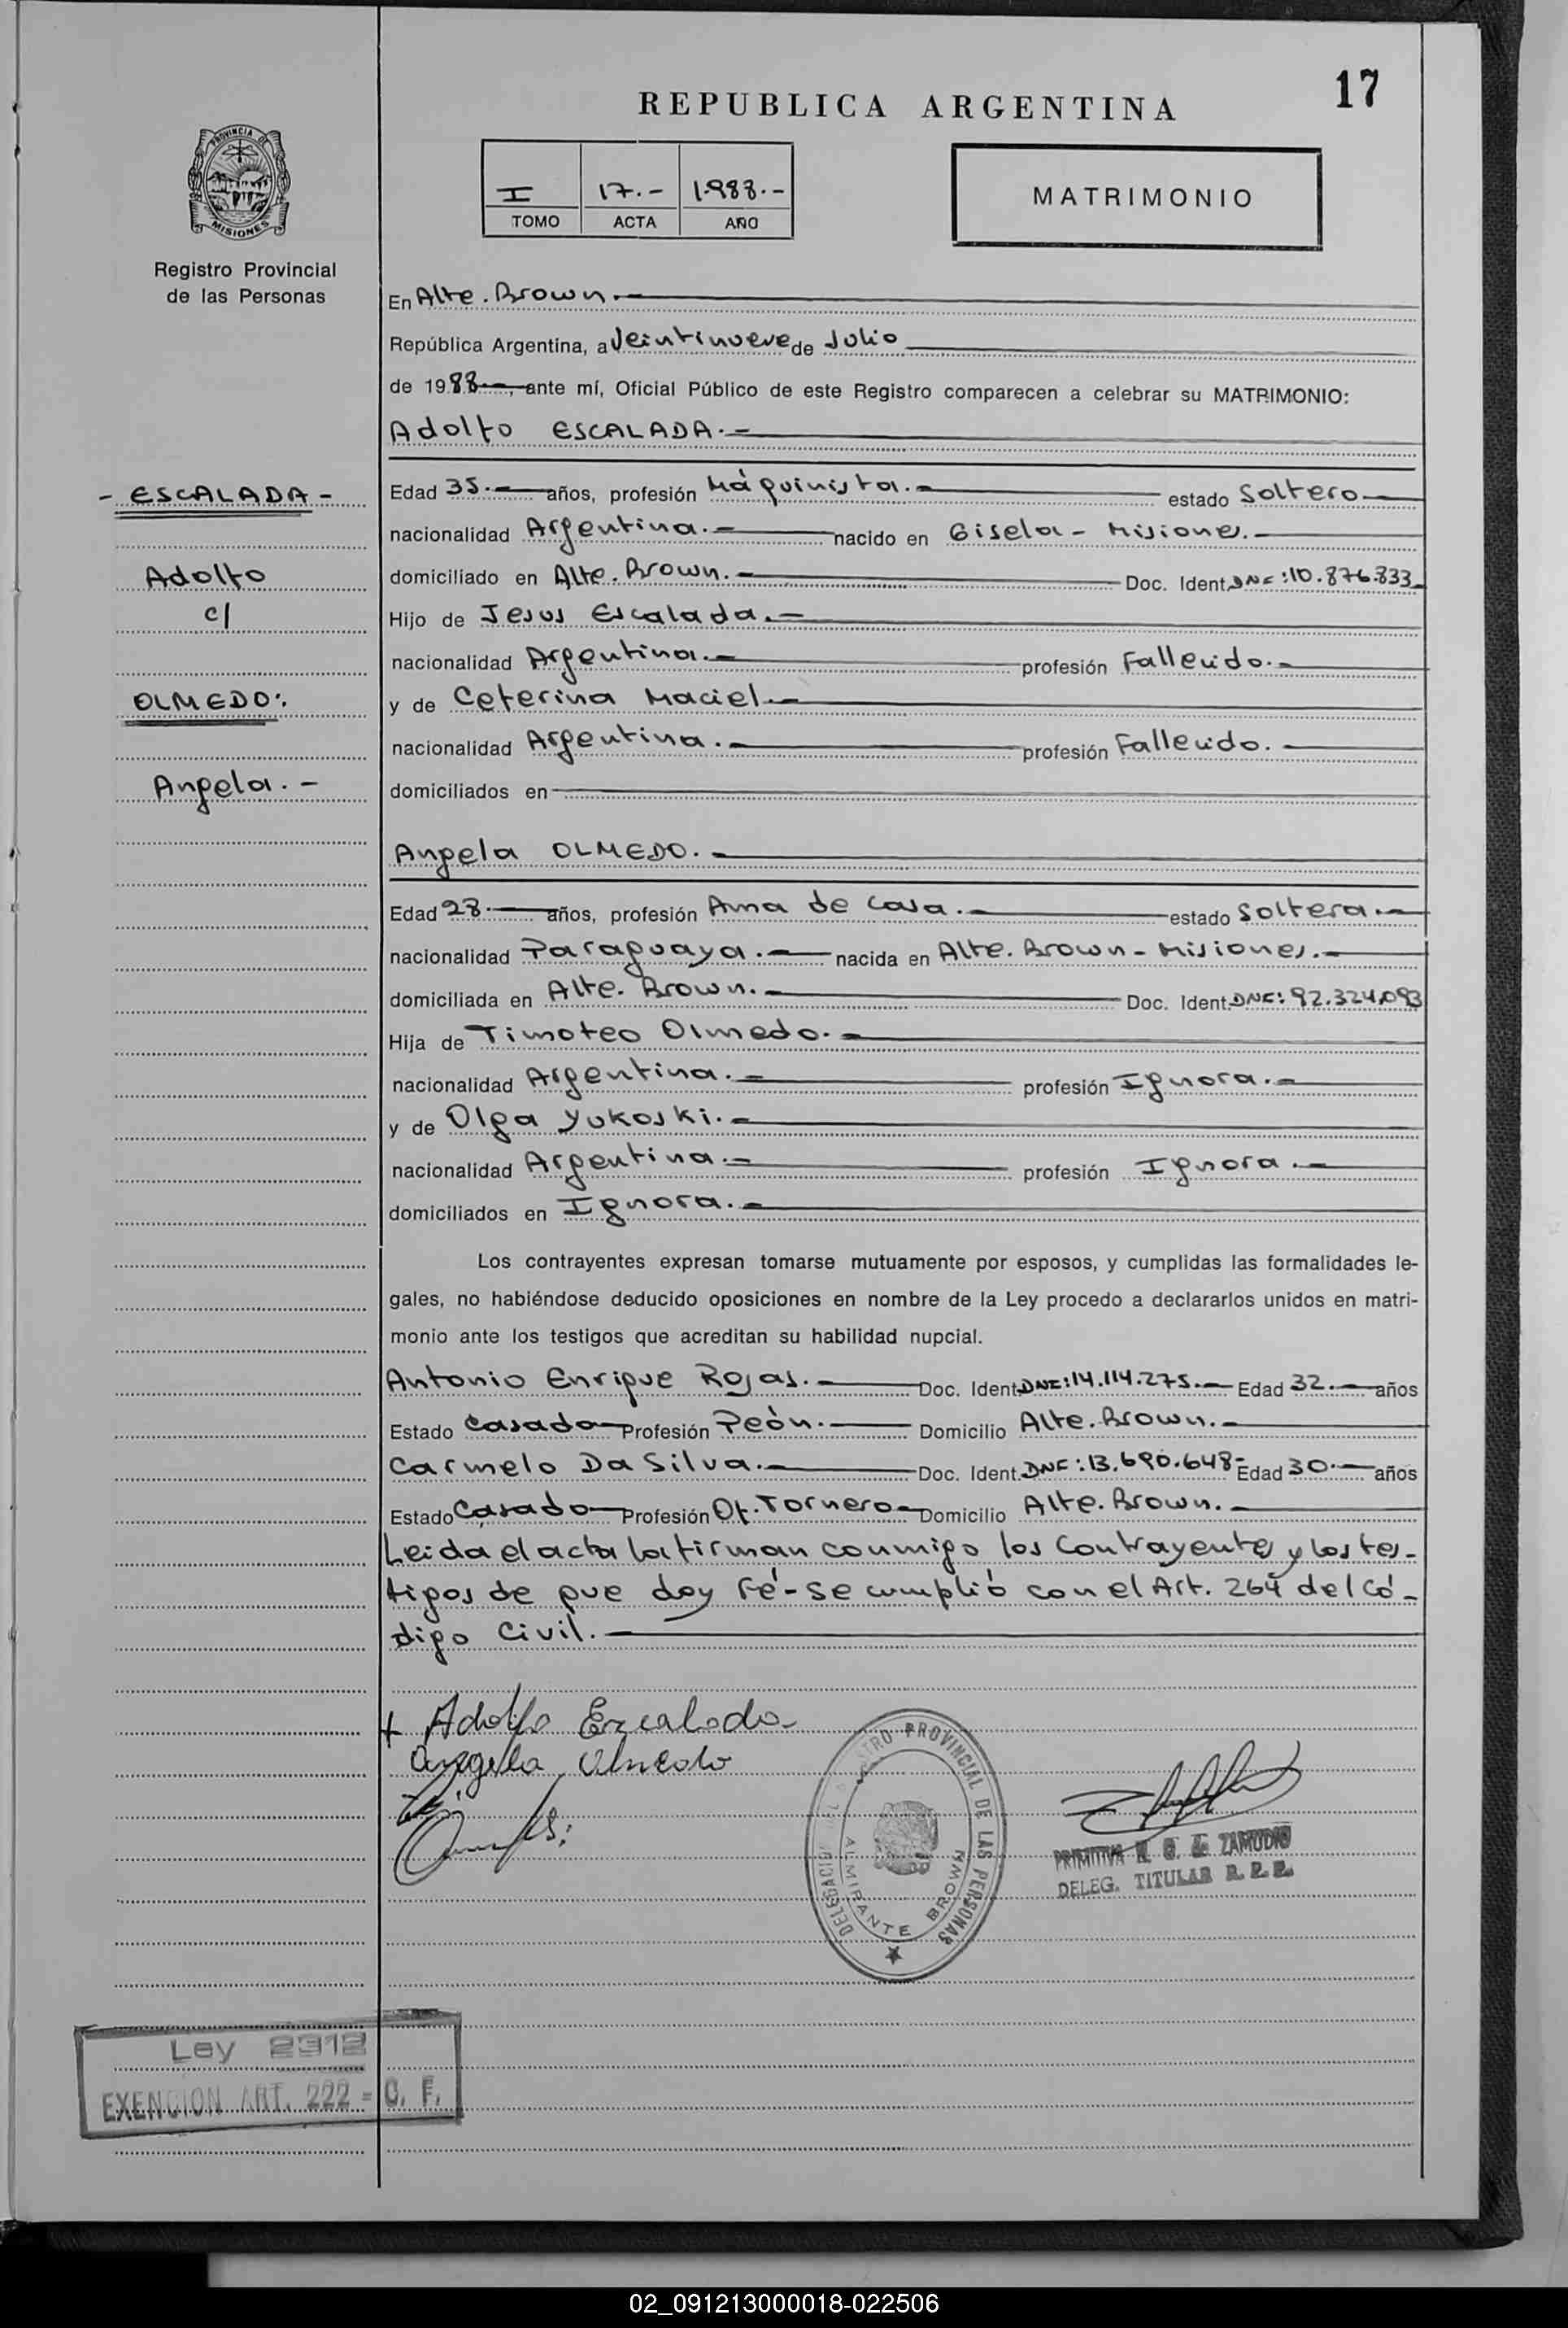 17
REPUBLICA ARGENTINA
I 17.- 1.988.-
TOMO ACTA AÑO
MATRIMONIO
PROVINCIA DE
MISIONES
Registro Provincial
de las Personas
En Alte. Brown.-
República Argentina, a Veintinueve de Julio
de 1988.-, ante mí, Oficial Público de este Registro comparecen a celebrar su MATRIMONIO:
Adolfo ESCALADA.-
- ESCALADA -
Adolfo
c/
OLMEDO:
Angela.-
Edad 35.- años, profesión Máquinista.- estado Soltero
nacionalidad Argentina.- nacido en Gisela - Misiones.
domiciliado en Alte. Brown.- Doc. Ident. DNI:10.876.833
Hijo de Jesus Escalada.-
nacionalidad Argentina.- profesión Fallecido.-
y de Ceferina Maciel.-
nacionalidad Argentina.- profesión Fallecido.
domiciliados en
Angela OLMEDO.-
Edad 28.- años, profesión Ama de Casa.- estado Soltera.-
nacionalidad Paraguaya.- nacida en Alte. Brown - Misiones.-
domiciliada en Alte. Brown.- Doc. Ident. DNI: 92.324.093
Hija de Timoteo Olmedo.-
nacionalidad Argentina.- profesión Ignora.-
y de Olga Yukoski.-
nacionalidad Argentina.- profesión Ignora.-
domiciliados en Ignora.-
Los contrayentes expresan tomarse mutuamente por esposos, y cumplidas las formalidades le-
gales, no habiéndose deducido oposiciones en nombre de la Ley procedo a declararlos unidos en matri-
monio ante los testigos que acreditan su habilidad nupcial.
Antonio Enrique Rojas.- Doc. Ident. DNI:14.114.275.- Edad 32.- años
Estado Casado Profesión Peòn.- Domicilio Alte. Brown.-
Carmelo Da Silva.- Doc. Ident. DNI:13.690.648- Edad 30.- años
Estado Casado Profesión Of. Tornero- Domicilio Alte. Brown.-
Leida el acta la firman conmigo los Contrayentes y los tes-
tigos de que doy Fé-Se cumplió con el Art. 264 del Có-
digo Civil.-
Adolfo Escalada
Angela Olmedo
REGISTRO PROVINCIAL DE LAS PERSONAS
DELEGACION
ALMIRANTE BROWN
PRIMITIVA ZAMUDIO
DELEG. TITULAR R. P. P.
Ley 2312
EXENCION ART. 222 = C. F.
02_091213000018-022506